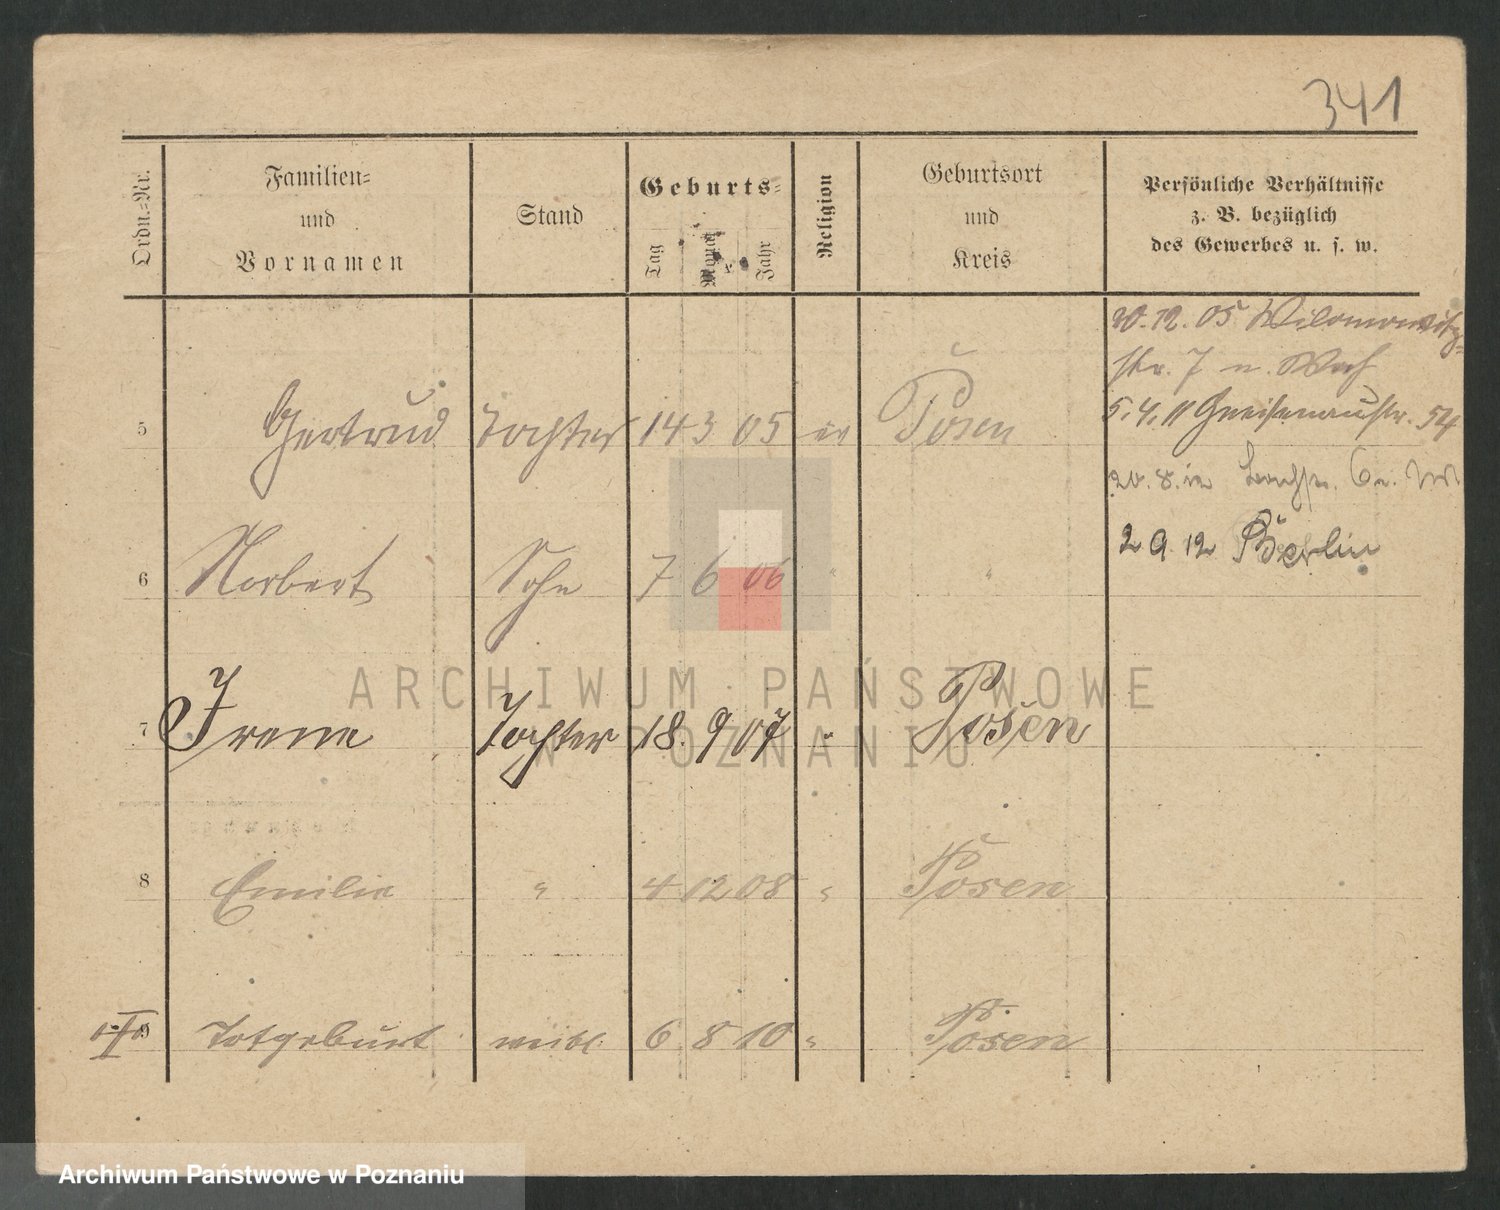 341
Ordn.=Nr.
Familien=
und
Vornamen
Stand
Geburts=
Tag
Monat
Jahr
Religion
Geburtsort
und
Kreis
Persönliche Verhältnisse
z. B. bezüglich
des Gewerbes u. s. w.
20.12.05 Wilamowitz=
str. 7 n.
5.4.11 Gneisenaustr. 54
20.8.
2 9. 12 Berlin
5 Gertrud Tochter 14 3 05 Posen
6 Norbert Sohn 7 6 06 " "
7 Irene Tochter 18. 9 07 " Posen
8 Emilie " 4 12 08 " Posen
9 Totgeburt weibl. 6 8 10 " Posen
ARCHIWUM PAŃSTWOWE
W POZNANIU
Archiwum Państwowe w Poznaniu